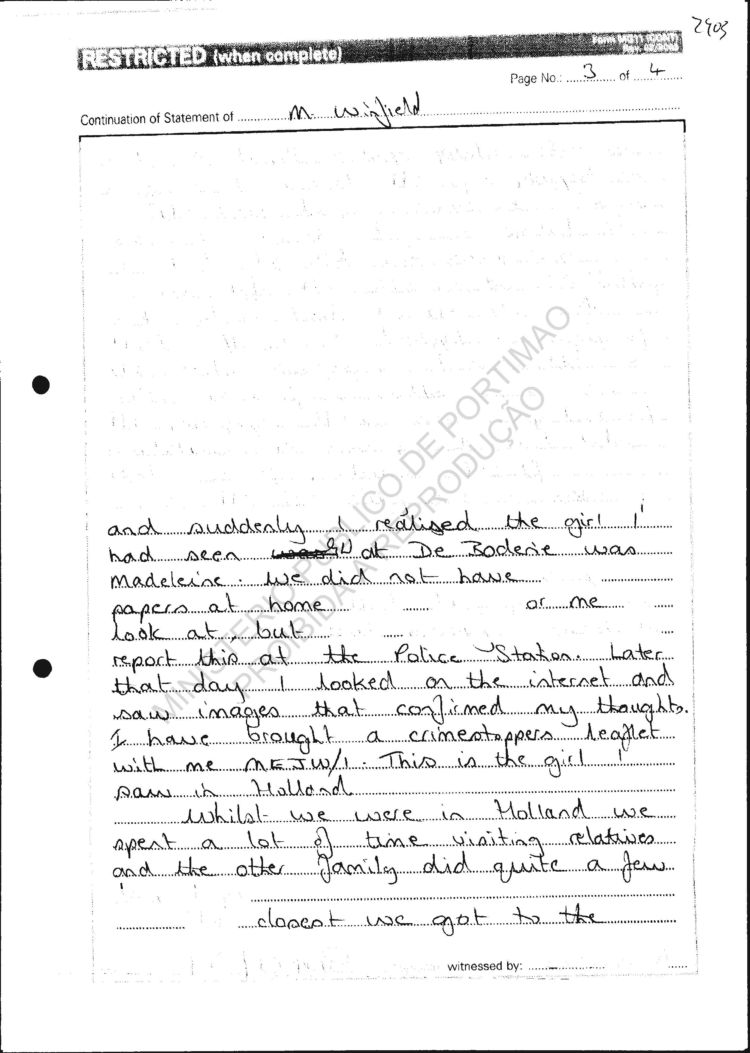 2903
RESTRICTED (when complete)
Page No.: 3 of 4
Continuation of Statement of M. Winfield
MINISTÉRIO PÚBLICO DE PORTIMAO
PROIBIDA A REPRODUÇÃO
and suddenly I realised the girl I
had seen at De Boderie was
Madeleine. We did not have
papers at home or me
look at, but
report this at the Police Station. Later
that day I looked on the internet and
saw images that confirmed my thoughts.
I have brought a crimestoppers leaflet
with me MEJW/1. This is the girl I
saw in Holland
Whilst we were in Holland we
spent a lot of time visiting relatives
and the other family did quite a few
closest we got to the
witnessed by: